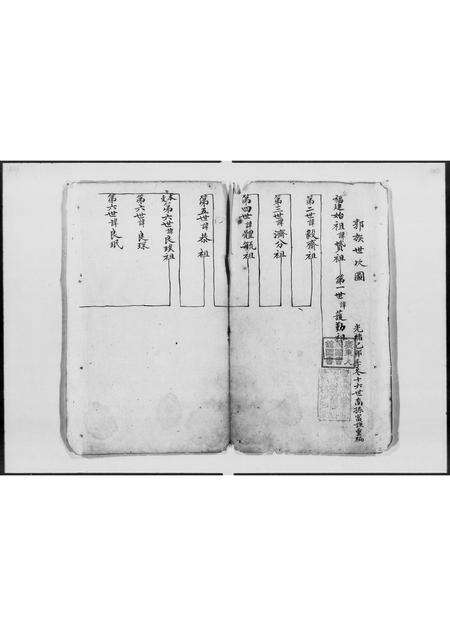 郭族世次圖
光緒己卯年冬十六世裔孫
福建始祖諱賛祖　第一世諱蓮勤祖
第二世諱毅齋祖
第三世諱濟分祖
第四世諱體毓祖
第五世諱恭祖
本支第六世諱良瑛祖
第六世諱良琛
第六世諱良珉